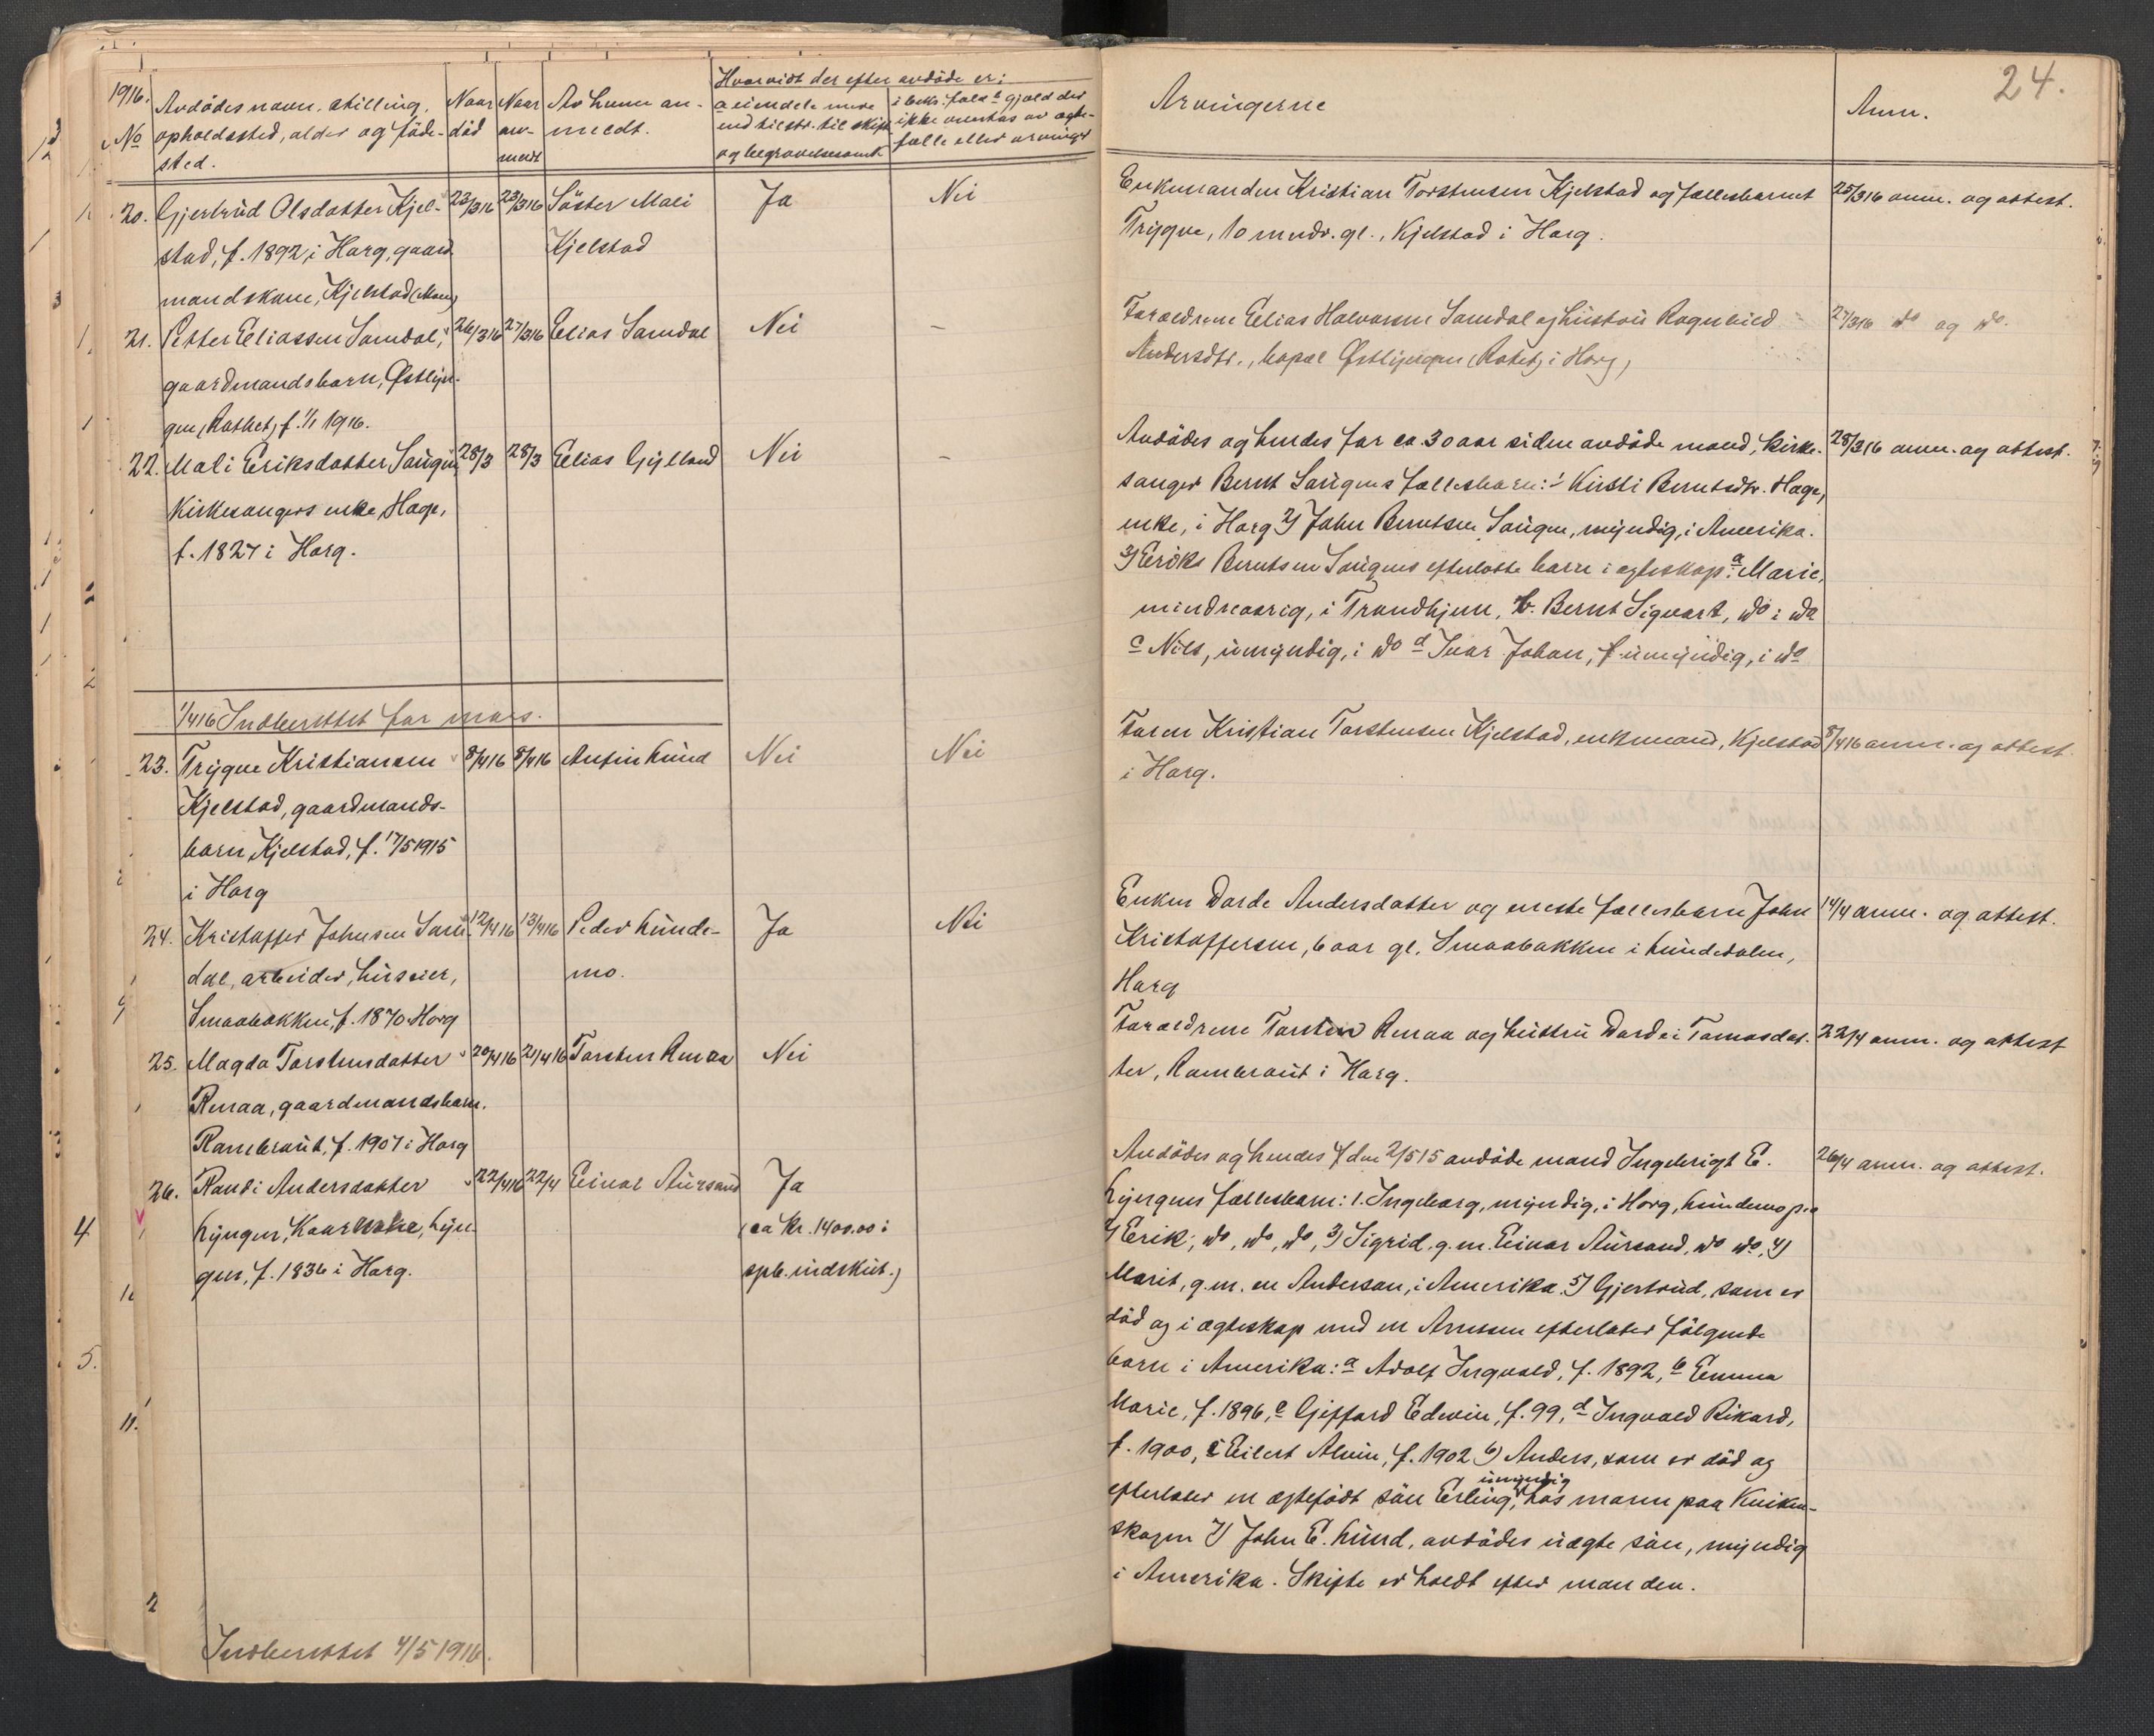 1916.
No
Avdödes navn, stilling,
opholdssted, alder og föde-
sted.
Naar
död
Naar
an-
meldt
Av hvem an-
meldt.
Hvorvidt der efter avdöde er:
a eiendele mere
end tilstr. til skifte
og begravelsesomk.
i beks. fald b gjæld der
ikke overtas av ægte-
fælle eller arvinger
20. Gjertrud Olsdatter Kjel-
stad, f. 1892, i Horg, gaard-
mandskone, Kjelstad (Moen)
23/3 16
23/3 16
Söster Mali
Kjelstad
Ja
Nei
21. Petter Eliassen Samdal,
gaardmandsbarn, Østlyn-
gen, (Rothet) f. 1/1 1916.
26/3 16
27/3 16
Elias Samdal
Nei
-
22. Mali Eriksdatter Saugen,
Kirkesangers enke, Hage,
f. 1827 i Horg.
28/3
28/3
Elias Gylland
Nei
-
1/4 16 Indberettet for mars.
23. Trygve Kristiansen
Kjelstad, gaardmands-
barn, Kjelstad, f. 17/5 1915
i Horg
8/4 16
8/4 16
Anfin Lund
Nei
Nei
24. Kristoffer Johnsen Sam-
dal, arbeider, huseier,
Smaabakken, f. 1870 Horg
12/4 16
13/4 16
Peder Lunde-
mo.
Ja
Nei
25. Magda Torstensdatter
Renaa, gaardmandsbarn.
Rambraut, f. 1907 i Horg
20/4 16
21/4 16
Torsten Renaa
Nei
26. Randi Andersdatter
Lyngen, Kaarkone, Lyn-
gen, f. 1836 i Horg.
22/4 16
22/4
Einar Aursand
Ja
(ca kr. 1400.00 i
spb. indskut.)
Indberettet 4/5 1916.
24.
Arvingerne
Anm.
Enkemanden Kristian Torstensen Kjelstad og fællesbarnet
Trygve, 10 mndr. gl., Kjelstad i Horg.
25/3 16 anm. og attest.
Forældrene Elias Halvorsen Samdal og hustru Ragnhild
Andersdtr., bopæl Østlyngen (Rotet) i Horg)
27/3 16 do og do.
Avdödes og hendes for ca. 30 aar siden avdöde mand, kirke-
sanger Bernt Saugens fællesbarn: 1 Kirsti Berntsdtr. Hage,
enke, i Horg 2) John Berntsen Saugen, myndig, i Amerika.
3) Eriks Berntsen Saugens efterlatte barn i egteskap: a Marie,
mindreaarig, i Trondhjem, b. Bernt Sigvart, do i do
c Nils, umyndig, i do d Ivar Johan, f. umyndig, i do
28/3 16 anm. og attest.
Faren Kristian Torstensen Kjelstad, enkemand, Kjelstad
i Horg.
8/4 16 anm. og attest.
Enken Dorde Andersdatter og eneste fællesbarn John
Kristoffersen, 6 aar gl. Smaabakken i Lundedalen,
Horg
14/4 anm. og attest.
Forældrene Torsten Renaa og hustru Dordei Tomasdat-
ter, Rambraut i Horg.
22/4 anm. og attest
Avdödes og hendes f den 2/5 15 avdöde mand Ingebrigt E.
Lyngens fællesbarn: 1. Ingeborg, myndig, i Horg, Lundemo p.a
2) Erik, do, do, do, 3) Sigrid, g.m. Einar Aursand, do do, 4)
Marit, g.m. en Anderson, i Amerika. 5) Gjertrud, som er
död og i ægteskap med en Arnesen efterlater fölgende
barn i Amerika: a Adolf Ingvald, f. 1892, b Emma
Marie, f. 1896, c Gifford Edwin, f. 99, d Ingvald Rikard,
f. 1900, e Eilert Alvin, f. 1902 6) Anders, som er död og
umyndig
efterlater en ægtefödt sön Erling, hos moren paa Kviken-
skogen 7) John E. Lund, avdödes uægte sön, myndig
i Amerika. Skifte er holdt efter manden.
26/4 anm. og attest.